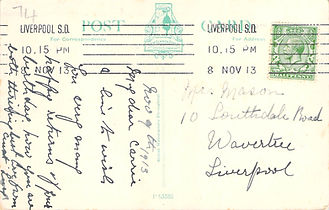 74
LIVERPOOL S.O.
10.15 PM
8 NOV 13
POST CARD
LIVERPOOL S.O.
10.15 PM
8 NOV 13
For Correspondence
Nov 9th 1913
My dear Carrie
A line to wish
you very many
happy returns of your
birthday hope you are
both
love from
Mrs Mason
10 Southdale Road
Wavertree
Liverpool